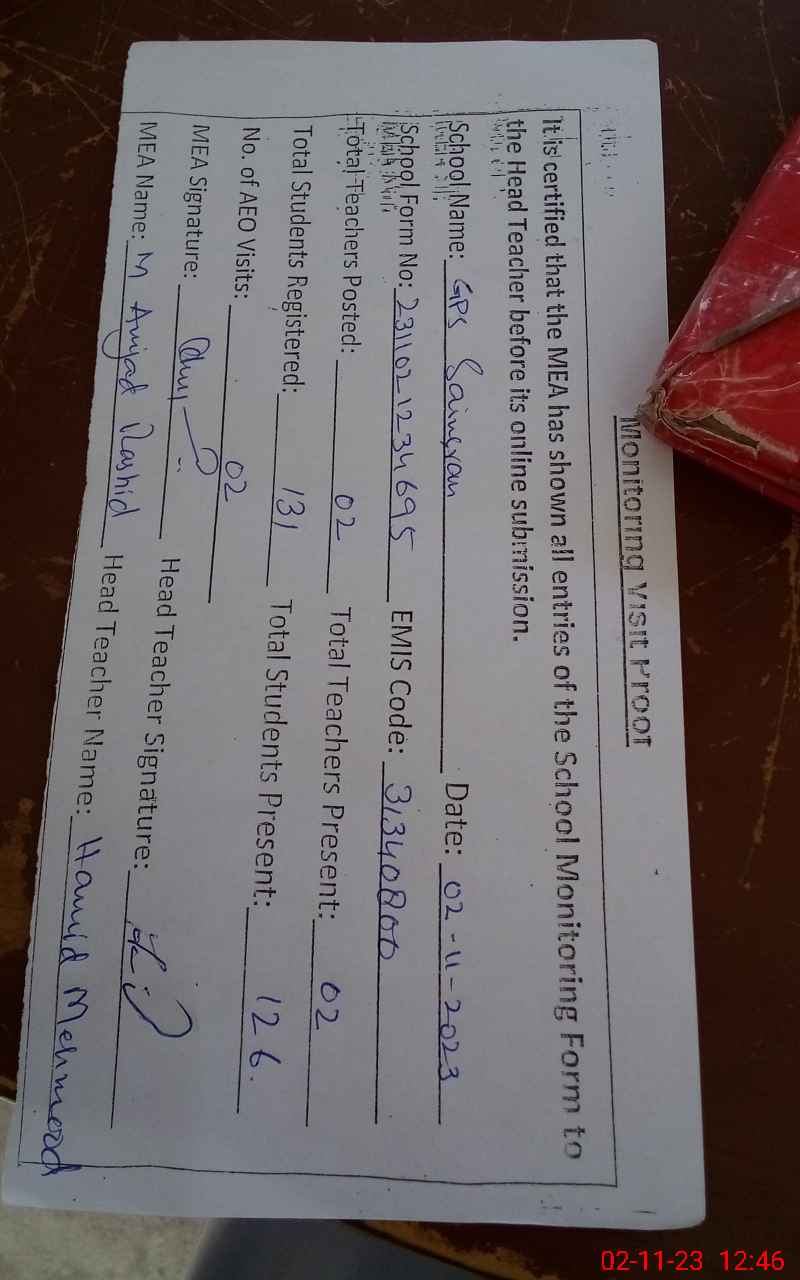 Monitoring Visit Proof
It is certified that the MEA has shown all entries of the School Monitoring Form to
the Head Teacher before its online submission.
School Name: GPS Date: 02-11-2023
School Form No: 231102 1234695 EMIS Code: 31340800
Total Teachers Posted: 02 Total Teachers Present: 02
Total Students Registered: 131 Total Students Present: 126.
No. of AEO Visits: 02
MEA Signature: Head Teacher Signature:
MEA Name: M Amjad Rashid Head Teacher Name: Hamid Mehmood
02-11-23 12:46